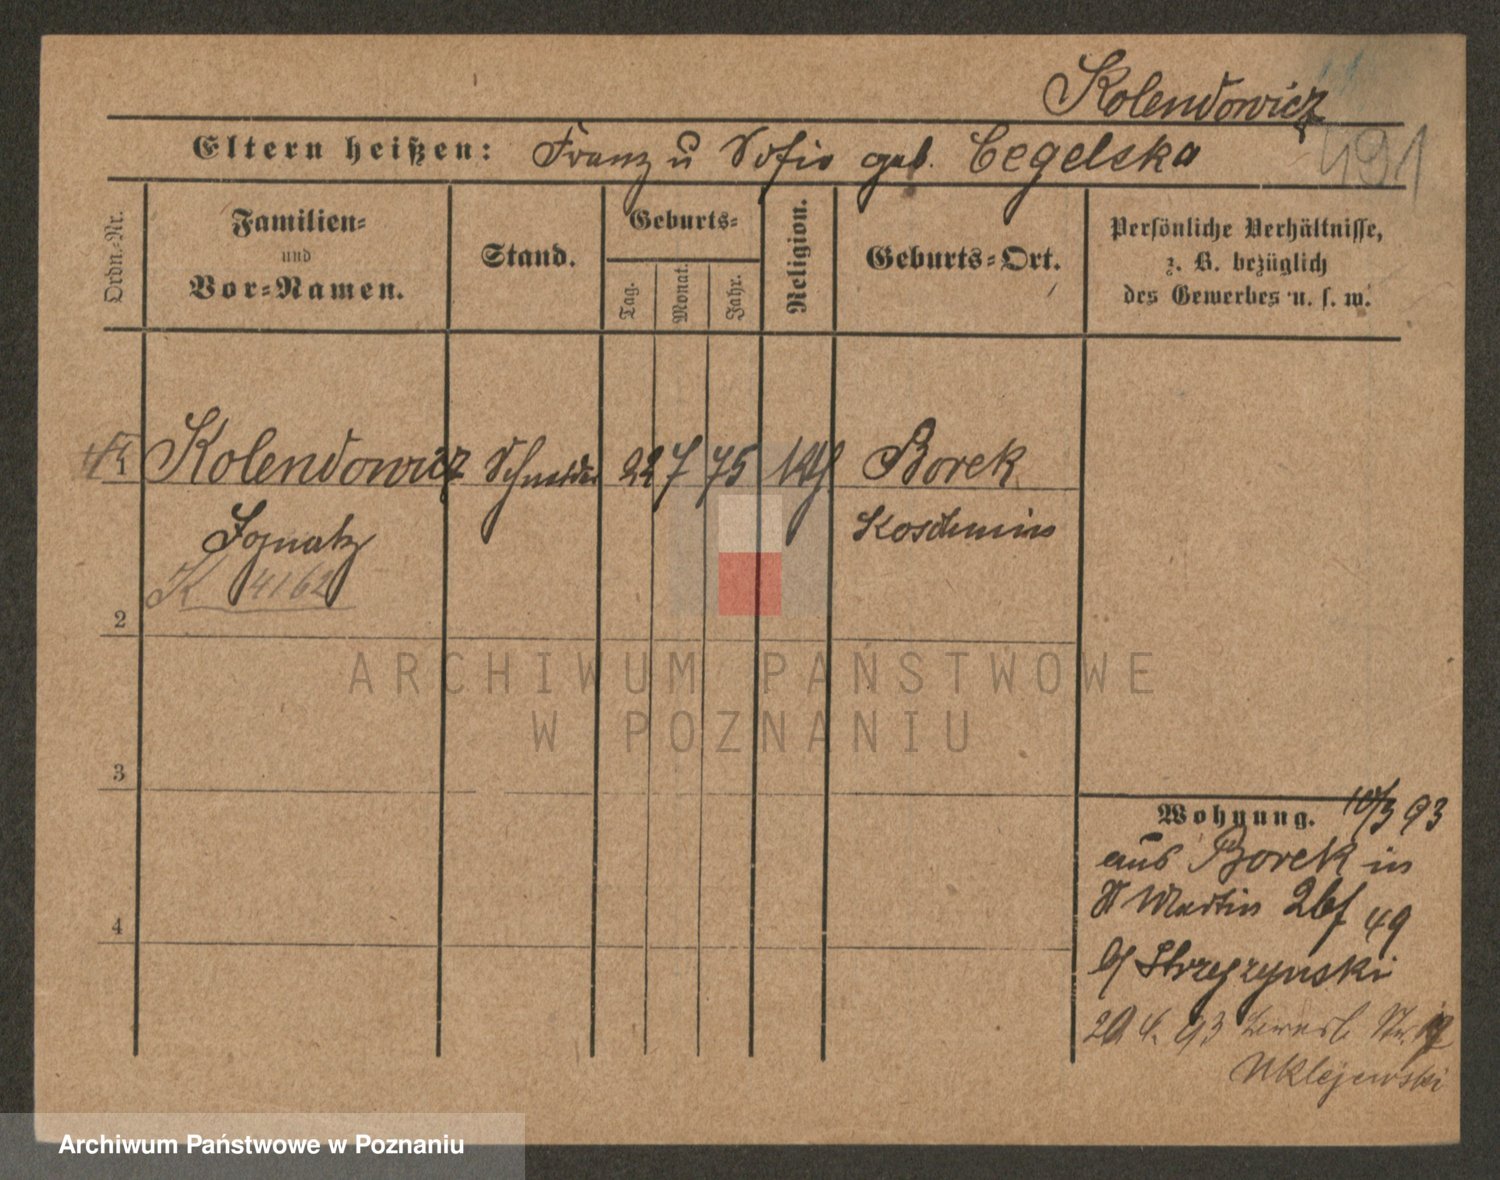 Kolendowicz
491
Eltern heißen: Franz u Sofia geb. Cegelska
Ordn.-Nr.
Familien-
und
Vor-Namen.
Stand.
Geburts-
Tag.
Monat.
Jahr.
Religion.
Geburts-Ort.
Persönliche Verhältnisse,
z. B. bezüglich
des Gewerbes u. s. w.
1 Kolendowicz Schneider 22 7 75 kth Borek
Ignatz Koschmin
K 4162
2
ARCHIWUM PAŃSTWOWE
W POZNANIU
3
Wohnung. 10/3 93
aus Borek in
St Martin 26f 49
b/
4
20 4. 93 Str.
Archiwum Państwowe w Poznaniu